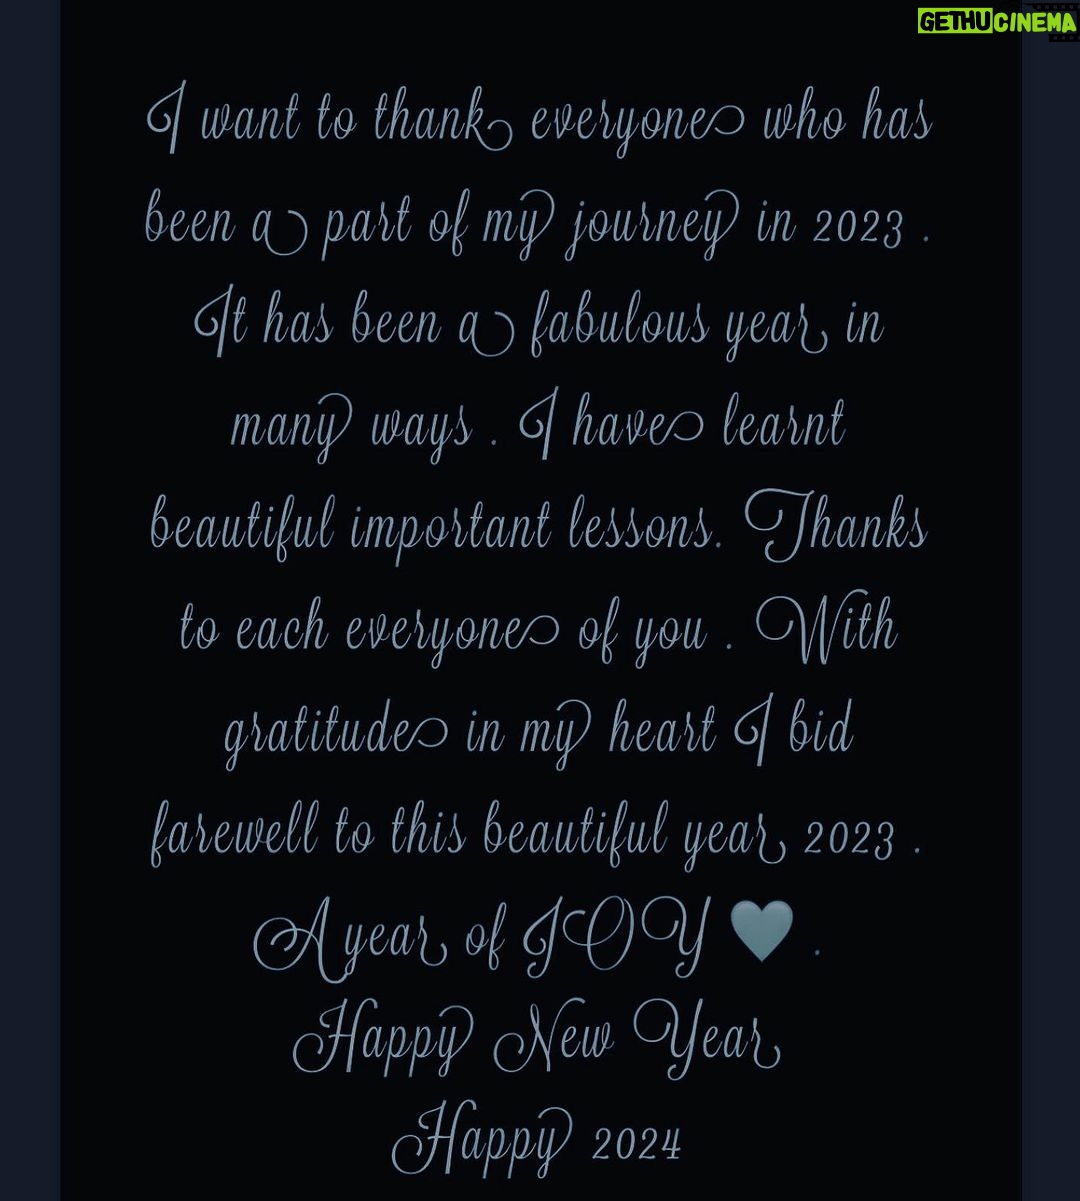 GETHUCINEMA
I want to thank everyone who has
been a part of my journey in 2023 .
It has been a fabulous year in
many ways . I have learnt
beautiful important lessons. Thanks
to each everyone of you . With
gratitude in my heart I bid
farewell to this beautiful year 2023 .
A year of JOY 🩵 .
Happy New Year
Happy 2024